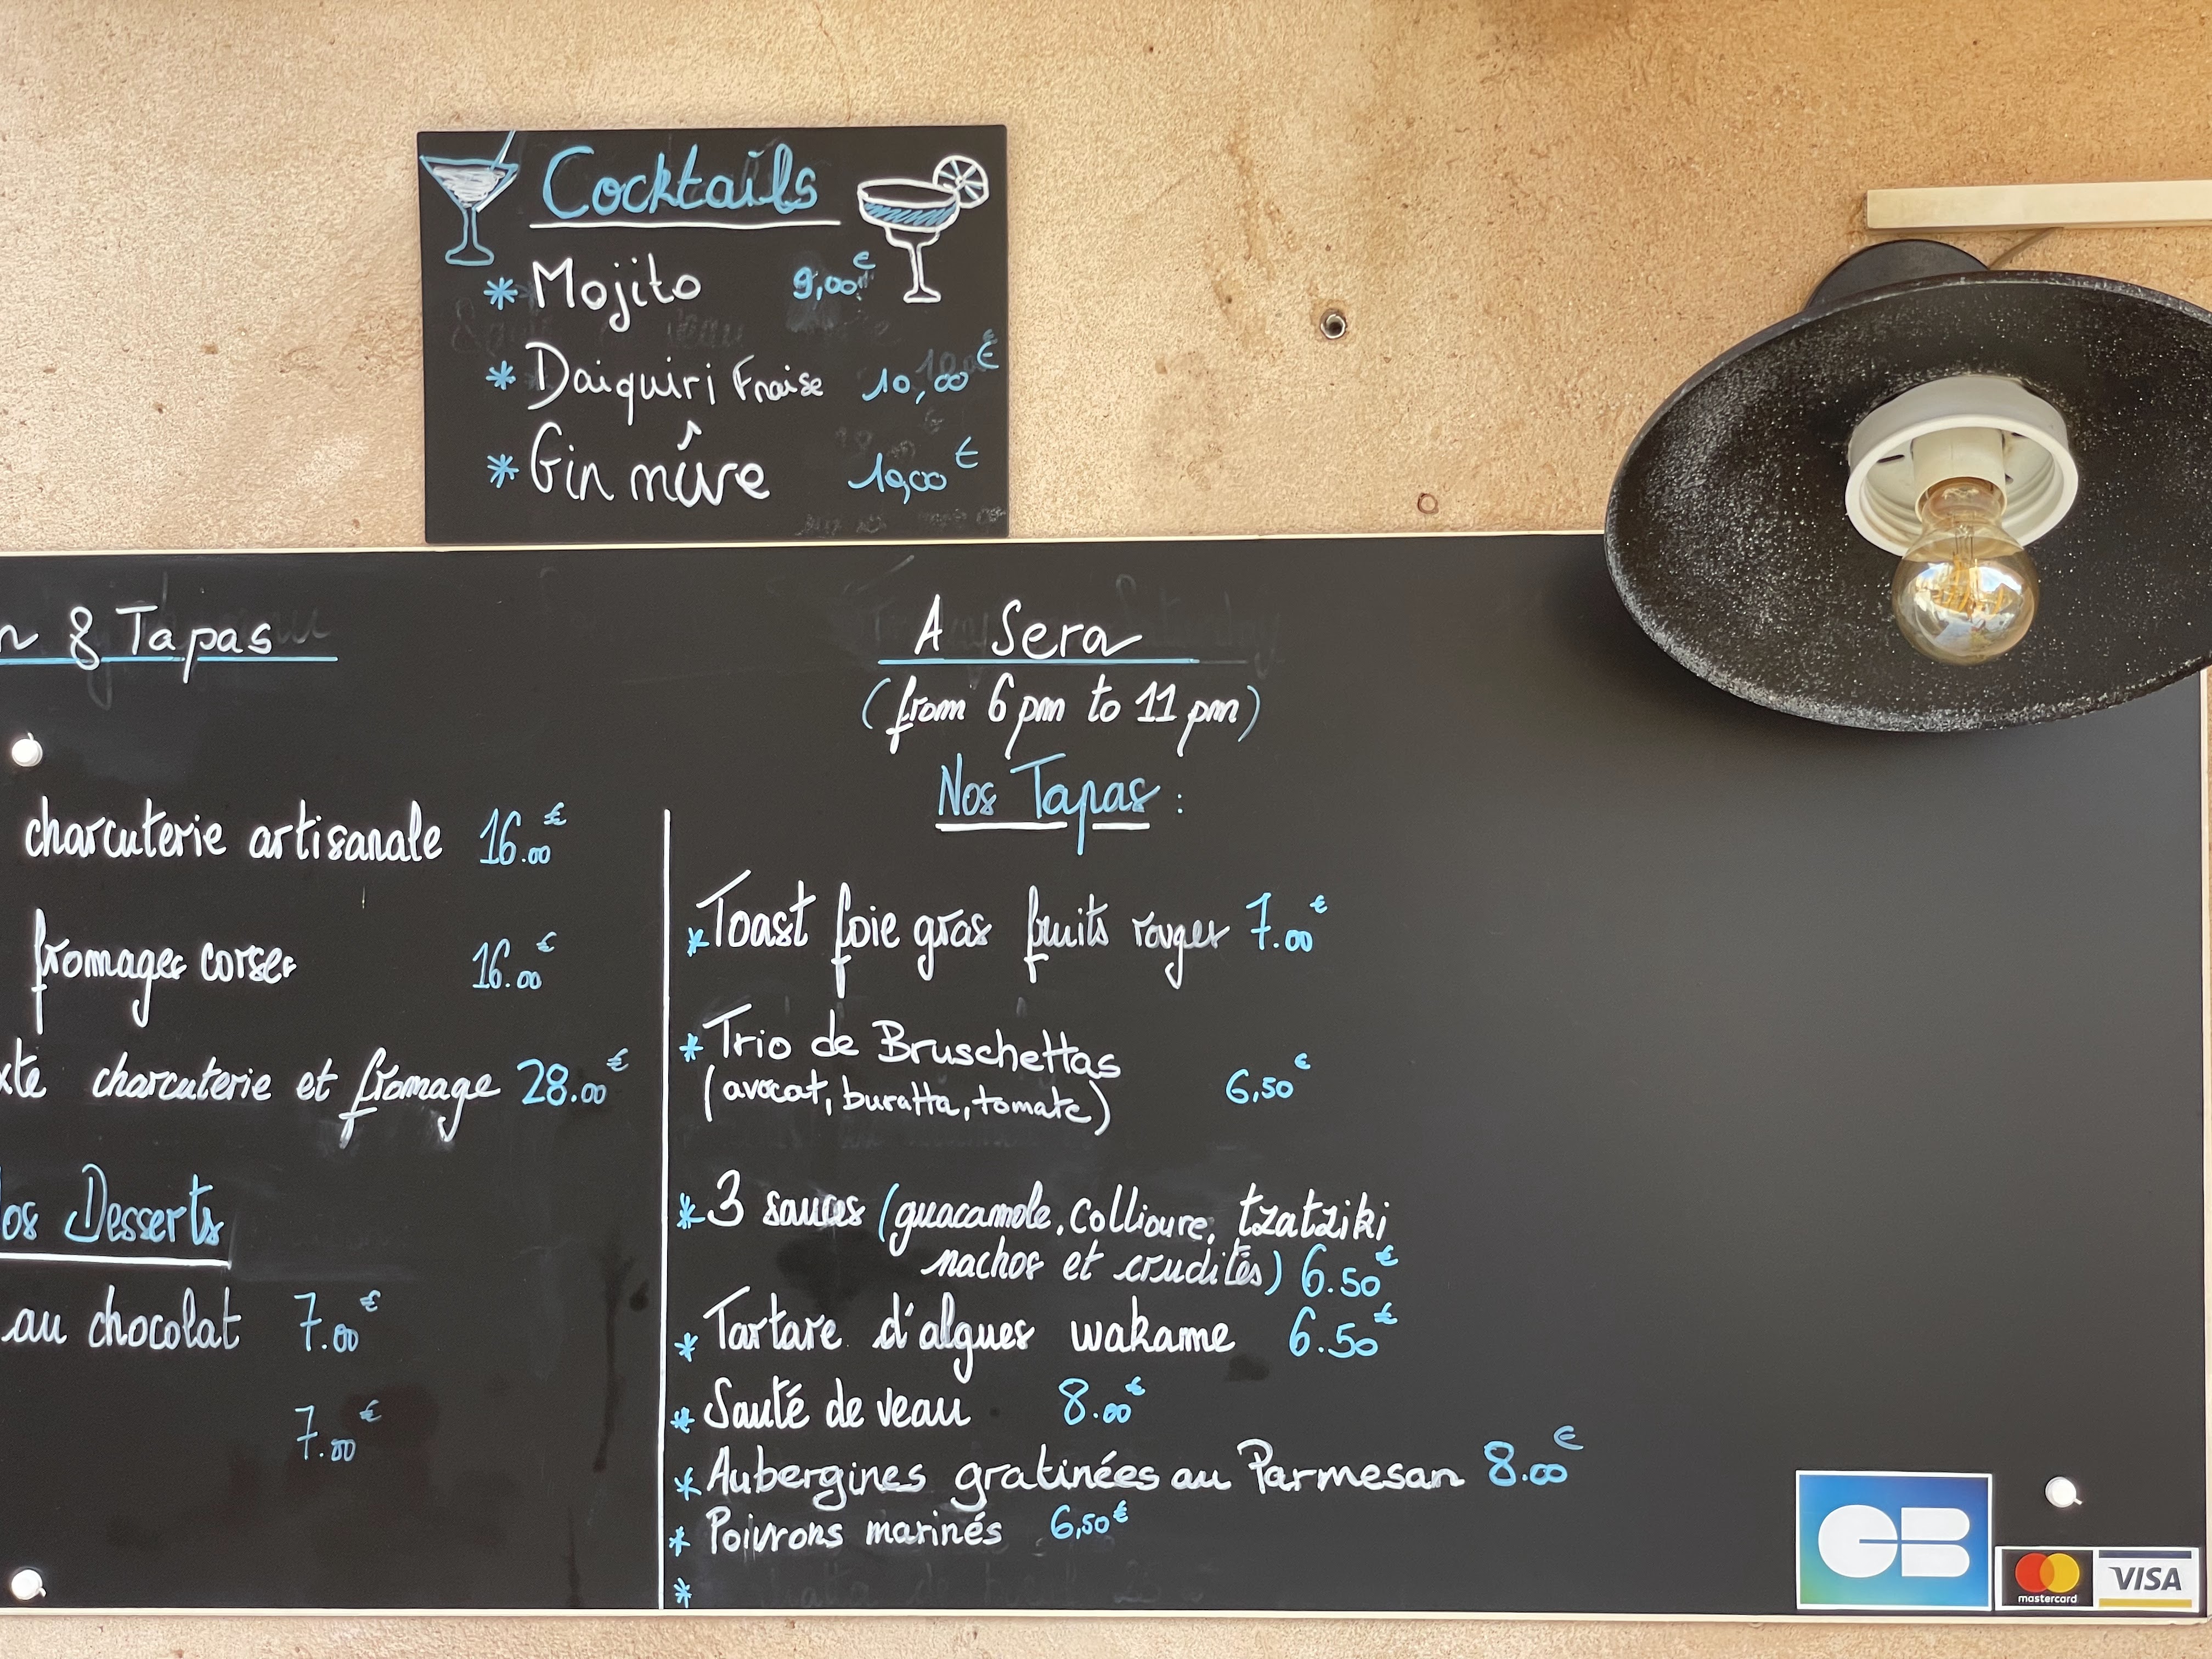 Cocktails
* Mojito 9,00€
* Daiquiri Fraise 10,00€
* Gin mûre 10,00€
& Tapas
charcuterie artisanale 16.00€
fromages corses 16.00€
charcuterie et fromage 28.00€
Desserts
au chocolat 7.00€
7.00€
A Sera
(from 6 pm to 11 pm)
Nos Tapas :
* Toast foie gras fruits rouges 7.00€
* Trio de Bruschettas
(avocat, buratta, tomate) 6,50€
* 3 sauces (guacamole, Collioure, tzatziki
nachos et crudités) 6.50€
* Tartare d'algues wakame 6.50€
* Sauté de veau 8.00€
* Aubergines gratinées au Parmesan 8.00€
* Poivrons marinés 6,50€
*
CB
mastercard
VISA